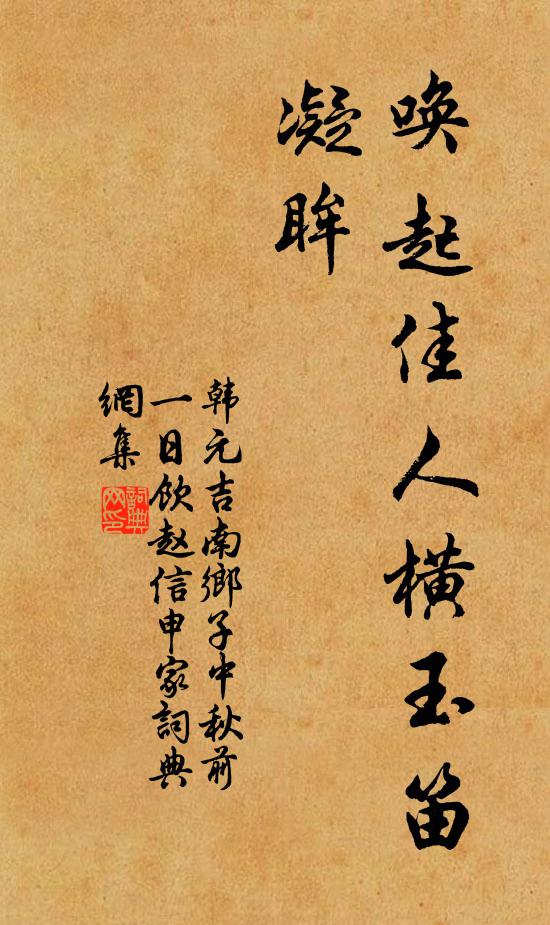 唤起佳人横玉笛
凝眸
韩元吉南鄉子中秋前
一日饮赵信申家詞典
網集
詞典
网印